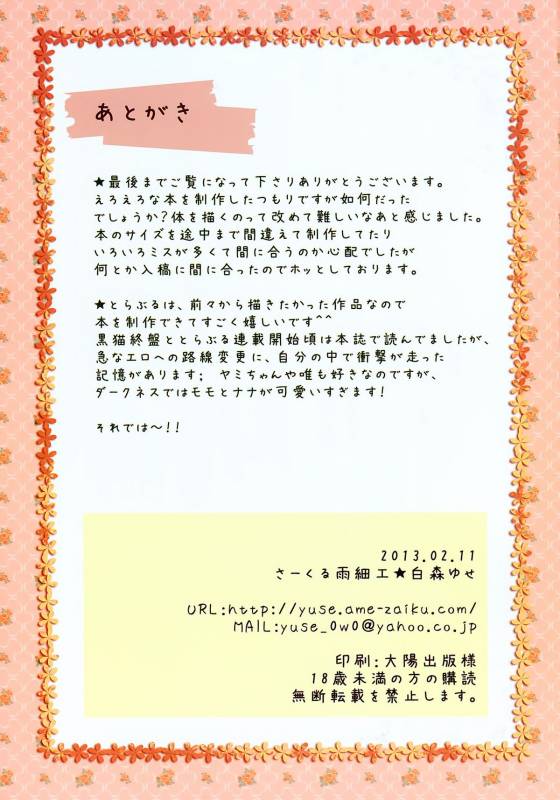 あとがき
★最後までご覧になって下さりありがとうございます。
えろえろな本を制作したつもりですが如何だった
でしょうか?体を描くのって改めて難しいなあと感じました。
本のサイズを途中まで間違えて制作してたり
いろいろミスが多くて間に合うのか心配でしたが
何とか入稿に間に合ったのでホッとしております。
★とらぶるは、前々から描きたかった作品なので
本を制作できてすごく嬉しいです^^
黒猫終盤ととらぶる連載開始頃は本誌で読んでましたが、
急なエロへの路線変更に、自分の中で衝撃が走った
記憶があります; ヤミちゃんや唯も好きなのですが、
ダークネスではモモとナナが可愛いすぎます!
それでは~!!
2013.02.11
さーくる雨細工★白森ゆせ
URL:http://yuse.ame-zaiku.com/
MAIL:yuse_0w0@yahoo.co.jp
印刷:大陽出版様
18歳未満の方の購読
無断転載を禁止します。